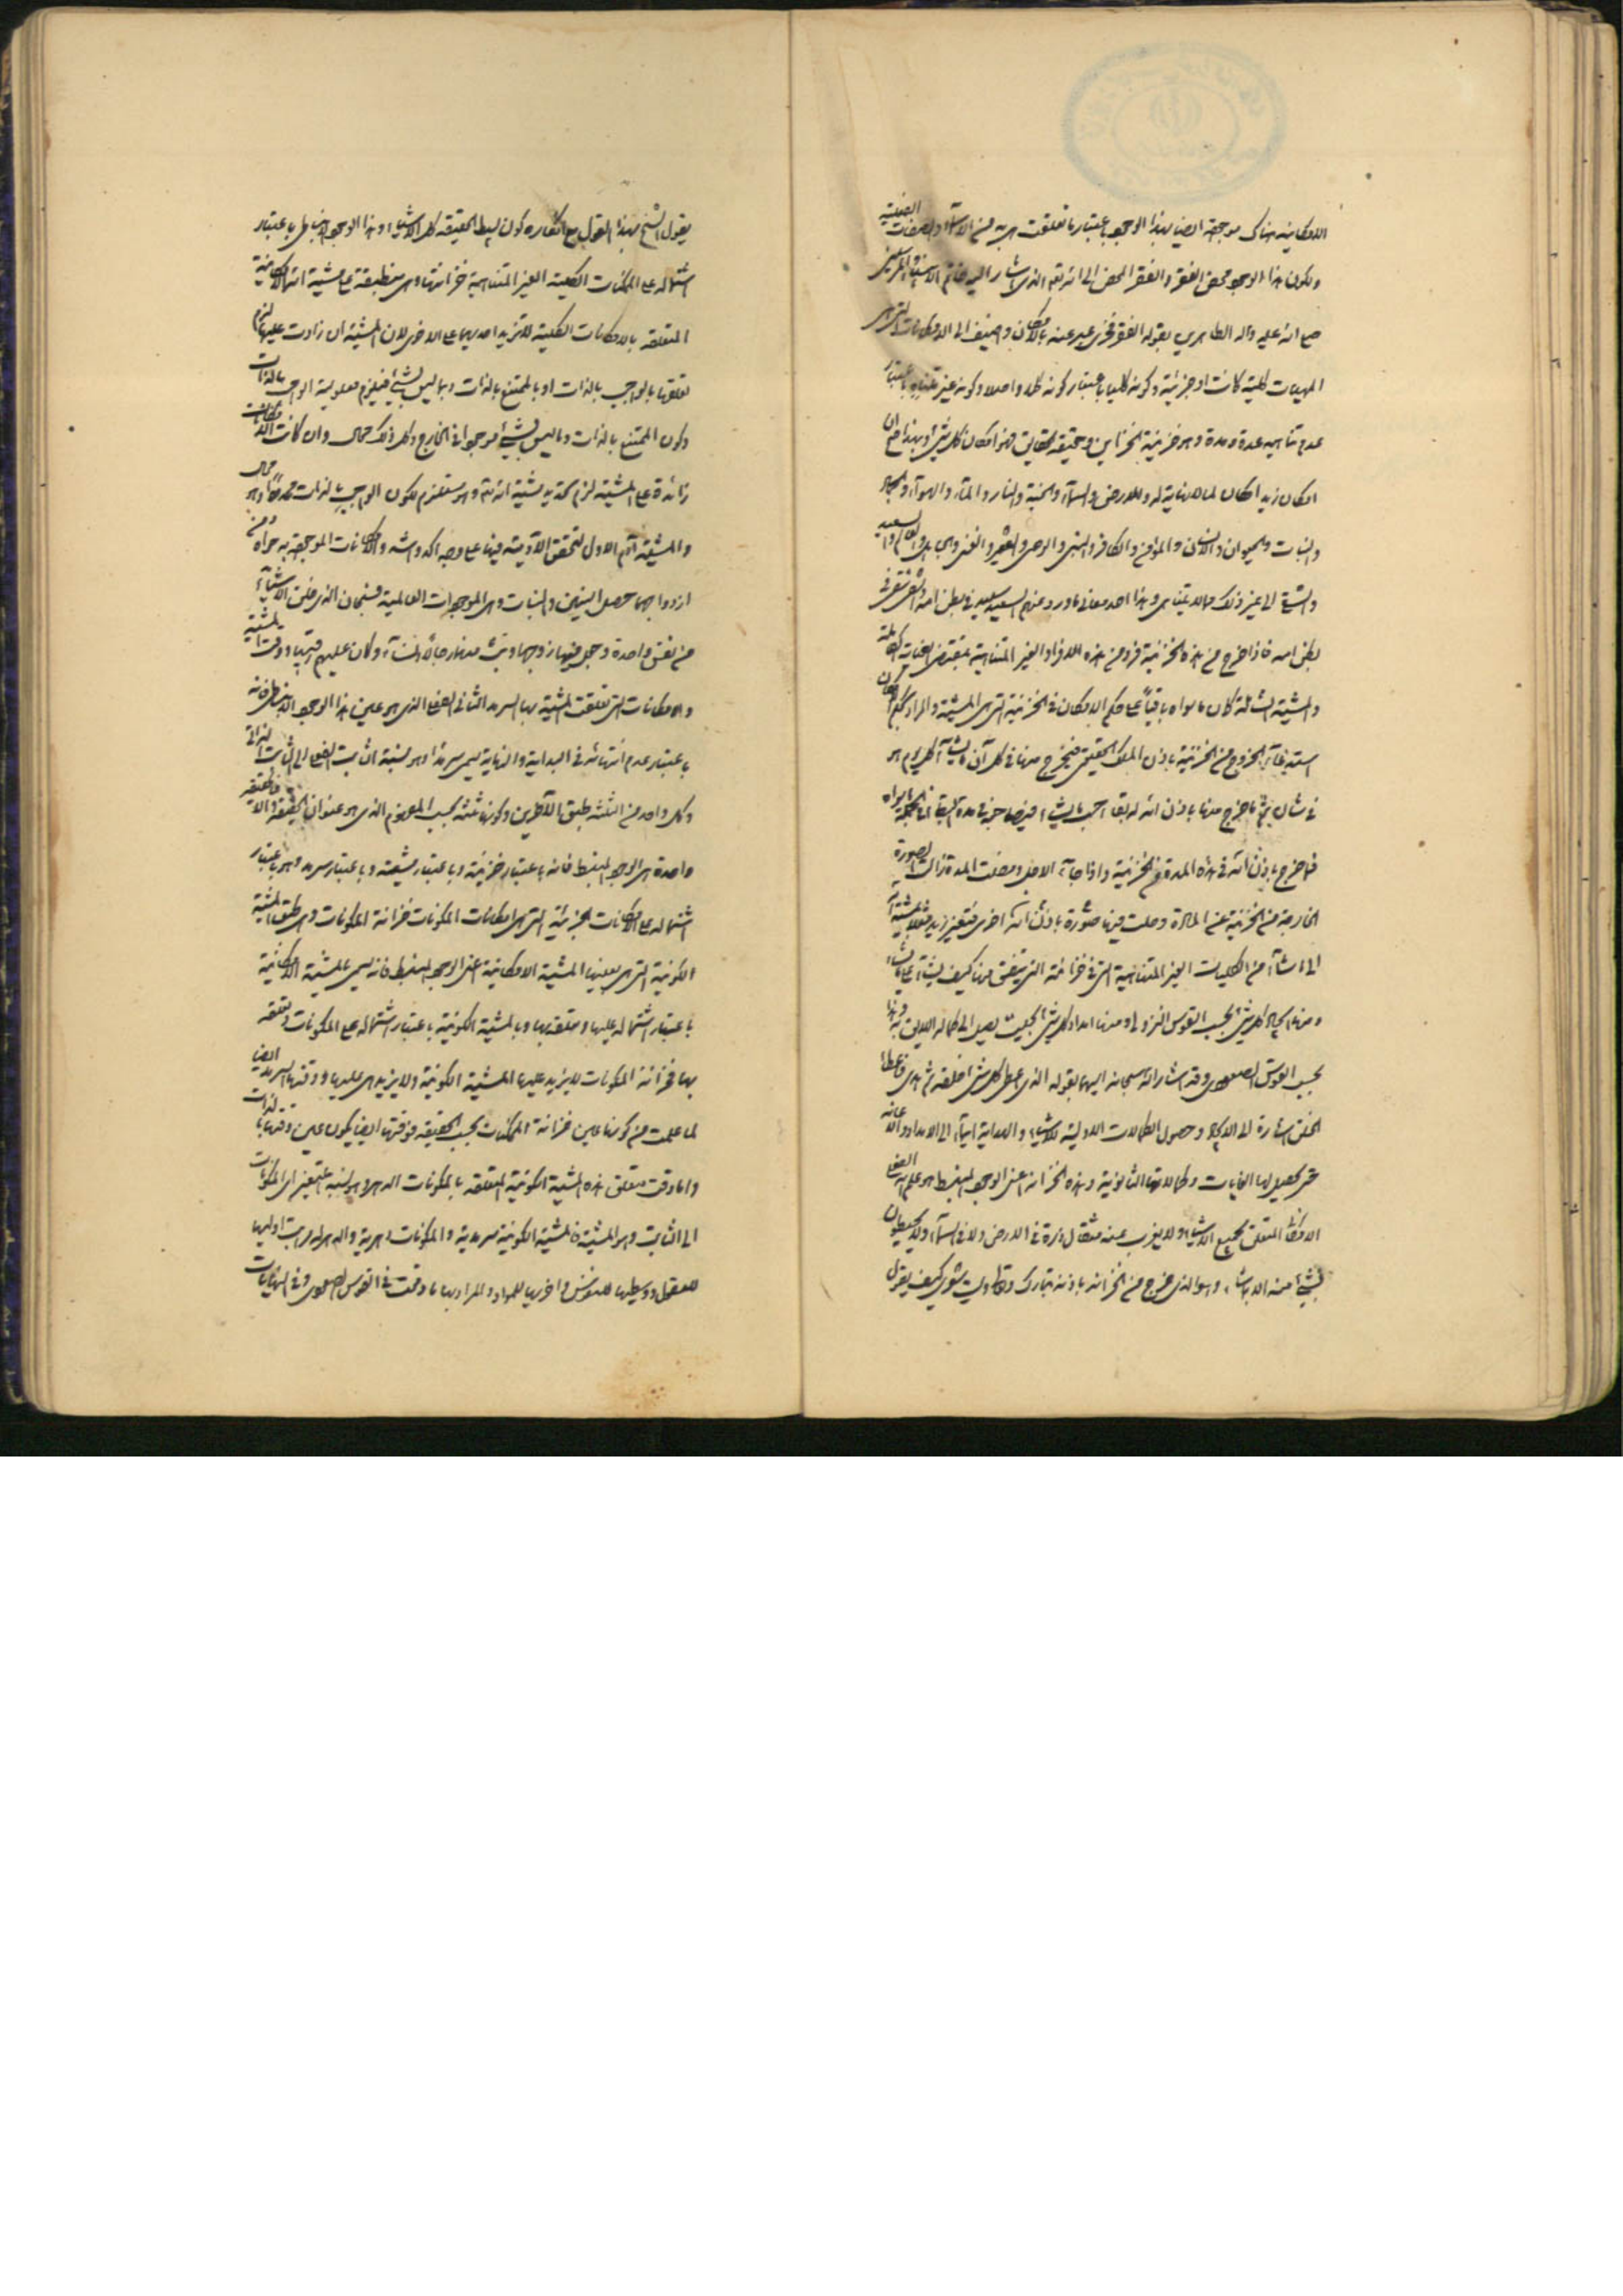 الامكانية هناك موجودة ايضا بهذا الوجود باعتبار ما تعلقت به من الاسماء والصفات الفعلية
ولكون هذا الوجود محض الفقر والفقر المحض الى الله تعالى الذى اشار اليه خاتم الانبياء والمرسلين
صلى الله عليه وآله الطاهرين بقوله الفقر فخرى عبر عنه بالامكان واضيف الى الامكانات التى هى
المهيات كلية كانت او جزئية وكونه كليا باعتبار كونه كلا واصلا وكونه غير متناه باعتبار
عدم تناهيه عدة ومدة وهو خزينة الخزاين وحقيقة الحقايق فهو امكان كل شئ وبهذا صح ان
امكان زيد امكان لما لا نهاية له وللارض والسماء والجنة والنار والماء والهواء والجماد
والنبات والحيوان والانسان والمؤمن والكافر والنبى والوصى والفقير والغنى والجاهل والعالم والسعيد
والشقى الى غير ذلك مما لا يتناهى وهذا احد معانى ما ورد عنهم السعيد سعيد فى بطن امه والشقى شقى فى
بطن امه فاذا خرج من هذه الخزينة فرد من هذه الافراد الغير المتناهية بمقتضى العنايات الكاملة
والمشية الشاملة كان ما سواه باقيا على حكم الامكان فى الخزينة التى هى المشية والمراد بحكم الامكان
استدعاء الخروج من الخزينة باذن الملك الحقيقى فيخرج منها فى كل آن ما يشاء كل يوم هو
فى شان ثم ما خرج منها باذن الله له بقاء بحسب ما يشاء
فما خرج باذن الله فى هذه المدة من الخزينة واذا جاء الاجل ومضت المدة زالت الصورة
الخارجة من الخزينة عن المادة وحلت فيها صورة باذن الله اخرى فتغير زيد مثلا بمشية الله
الى ما شاء من الكليات الغير المتناهية التى فى خزائنه التى ينفق منها كيف يشاء على ما يشاء
ومنها ايجاد كل شئ بحسب القوس النزولى ومنها امداد كل شئ بحيث يصل الى كماله اللايق به وهذا
بحسب القوس الصعودى وقد اشار الله سبحانه اليهما بقوله الذى اعطى كل شئ خلقه ثم هدى فاعطاء
الخلق اشارة الى الايجاد وحصول الكمالات الاولية للاشياء والهداية ايماء الى الامداد والاعانة
حتى تحصيل لها الغايات وكمالاتها الثانوية وهذه الخزانة اعنى الوجود المنبسط هو علم الله الفعلى
الامكانى المتعلق بجميع الاشياء ولا يعزب عنه مثقال ذرة فى الارض ولا فى السماء ولا يحيطون
بشئ منه الا بما شاء وهو الذى خرج من الخزانة باذنه تبارك وتعالى وليت شعرى كيف يقول
يقول الشيخ بهذا القول مع انكاره كون بسيط الحقيقة كل الاشياء وهذا الوجود المنبسط باعتبار
اشتماله على الممكنات الكلية الغير المتناهية خزانتها وهى منطبقة على مشية الله الامكانية
المتعلقة بالامكانات الكلية لا تزيد احديهما على الاخرى لان المشية ان زادت عليها لزم
تعلقها بالواجب بالذات او بالممتنع بالذات وبما ليس بشئ فيلزم معلولية الواجب بالذات
وكون الممتنع بالذات وما ليس بشئ موجودا فى الخارج وكل ذلك محال وان كانت الامكانات
زائدة على المشية لزم تحديد مشية الله تعالى وهو مستلزم لكون الواجب بالذات محدودا وهو محال
والمشية آدم الاول لتحقق الآدمية فيها على وجه اكد واشد والامكانات الموجودة به حواء ومن
ازدواجهما حصل البنين والبنات وهى الموجودات العالمية فسبحان الذى خلق الاشياء
من نفس واحدة وجعل منها زوجها وبث منهما رجالا ونساء وكان عليهم رقيبا ووقت المشية
والامكانات التى تعلقت المشية بها السرمد الثانى الفعلى الذى هو عين هذا الوجود المنبسط فانه
باعتبار عدم انتهائه فى البداية والنهاية يسمى سرمدا وهو نسبة الثابت الفعلى الى الثابت الذاتى
وكل واحد من الثلثة طبق الآخرين وكونها ثلثة بحسب المفهوم الذى هو عنوان الحقيقة والا فالحقيقة
واحدة هى الوجود المنبسط فانه باعتبار خزينة وباعتبار مشية وباعتبار سرمد وهو باعتبار
اشتماله على الامكانات الجزئية التى هى امكانات المكونات خزانة المكونات وهى طبق المشية
الكونية التى هى بعينها المشية الامكانية اعنى الوجود المنبسط فانه يسمى بالمشية الامكانية
باعتبار اشتماله عليها وتعلقه بها وبالمشية الكونية باعتبار اشتماله على المكونات وتعلقه
بها فخزانة المكونات لا يزيد عليها المشية الكونية ولا يزيد هى عليها ووقتها السرمد ايضا
لما علمت من كونها عين خزانة الممكنات بحسب الحقيقة فوقتها ايضا يكون عين وقتها بالذات
واما وقت متعلق هذه المشية الكونية المتعلقة بالمكونات الدهر وهو نسبة المتغير اى المكونات
الى الثابت وهو المشية فالمشية الكونية سرمدية والمكونات دهرية والدهر له مراتب اوليها
للعقول ووسطيها للنفوس واخريها للمواد والمراد بها ما وقعت فى القوس الصعودى وفى النهايات